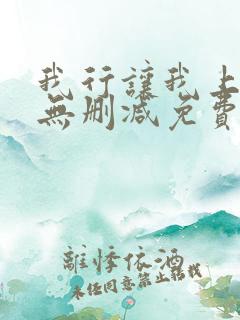 我行讓我上
無刪減免費
離悸依酒
未任同意禁止轉載